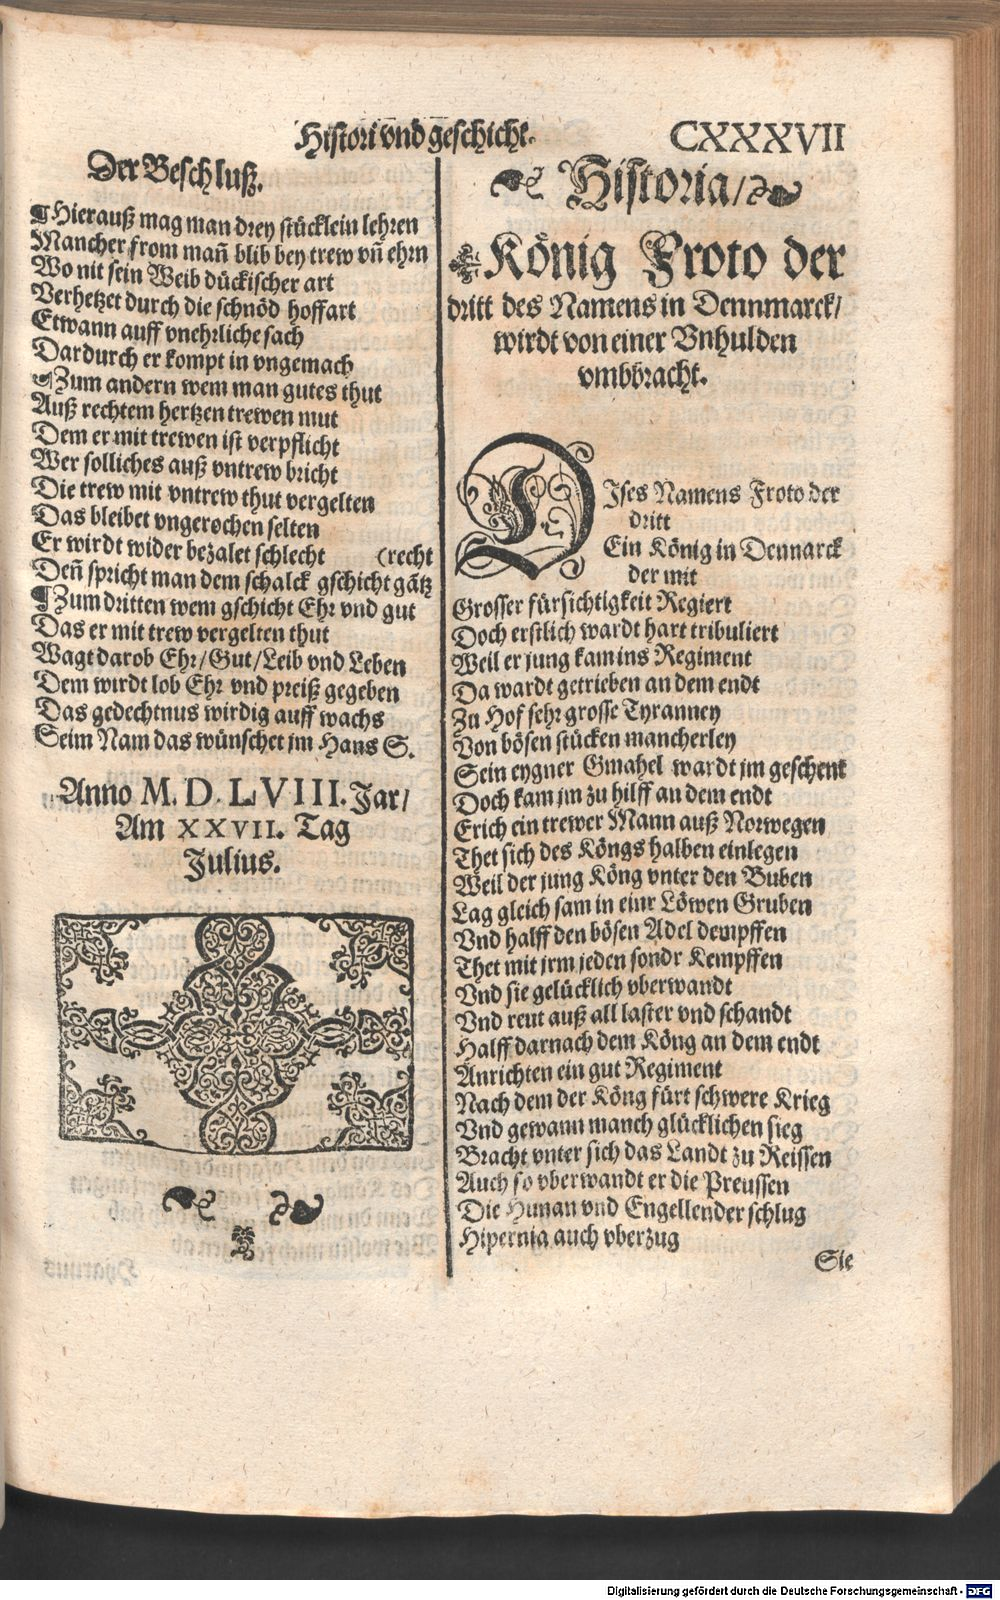 Histori vnd geschicht.
CXXXVII
Der Beschluß.
¶Hierauß mag man drey stücklein lehren
Mancher from mañ blib bey trew vñ ehrn
Wo nit sein Weib dückischer art
Verhetzet durch die schnöd hoffart
Etwann auff vnehrliche sach
Dardurch er kompt in vngemach
¶Zum andern wem man gutes thut
Auß rechtem hertzen trewen mut
Dem er mit trewen ist verpflicht
Wer solliches auß vntrew bricht
Die trew mit vntrew thut vergelten
Das bleibet vngerochen selten
Er wirdt wider bezalet schlecht (recht
Deñ spricht man dem schalck gschicht gãtz
¶Zum dritten wem gschicht Ehr vnd gut
Das er mit trew vergelten thut
Wagt darob Ehr/Gut/Leib vnd Leben
Dem wirdt lob Ehr vnd preiß gegeben
Das gedechtnus wirdig auff wachs
Seim Nam das wünschet jm Hans S.
Anno M. D. LVIII. Jar/
Am XXVII. Tag
Julius.
Historia/
König Froto der
dritt des Namens in Dennmarck/
wirdt von einer Vnhulden
vmbbracht.
DIses Namens Froto der
dritt
Ein König in Dennarck
der mit
Grosser fürsichtigkeit Regiert
Doch erstlich wardt hart tribuliert
Weil er jung kam ins Regiment
Da wardt getrieben an dem endt
Zu Hof sehr grosse Tyranney
Von bösen stücken mancherley
Sein eygner Gmahel wardt jm geschent
Doch kam jm zu hilff an dem endt
Erich ein trewer Mann auß Norwegen
Thet sich des Köngs halben einlegen
Weil der jung Köng vnter den Buben
Lag gleich sam in einr Löwen Gruben
Vnd halff den bösen Adel dempffen
Thet mit jrm jeden sondr Kempffen
Vnd sie gelücklich vberwandt
Vnd reut auß all laster vnd schandt
Halff darnach dem Köng an dem endt
Anrichten ein gut Regiment
Nach dem der Köng fürt schwere Krieg
Vnd gewann manch glücklichen sieg
Bracht vnter sich das Landt zu Reissen
Auch so vberwandt er die Preussen
Die Hunan vnd Engellender schlug
Hipernia auch vberzug
Sie
Digitalisierung gefördert durch die Deutsche Forschungsgemeinschaft - DFG